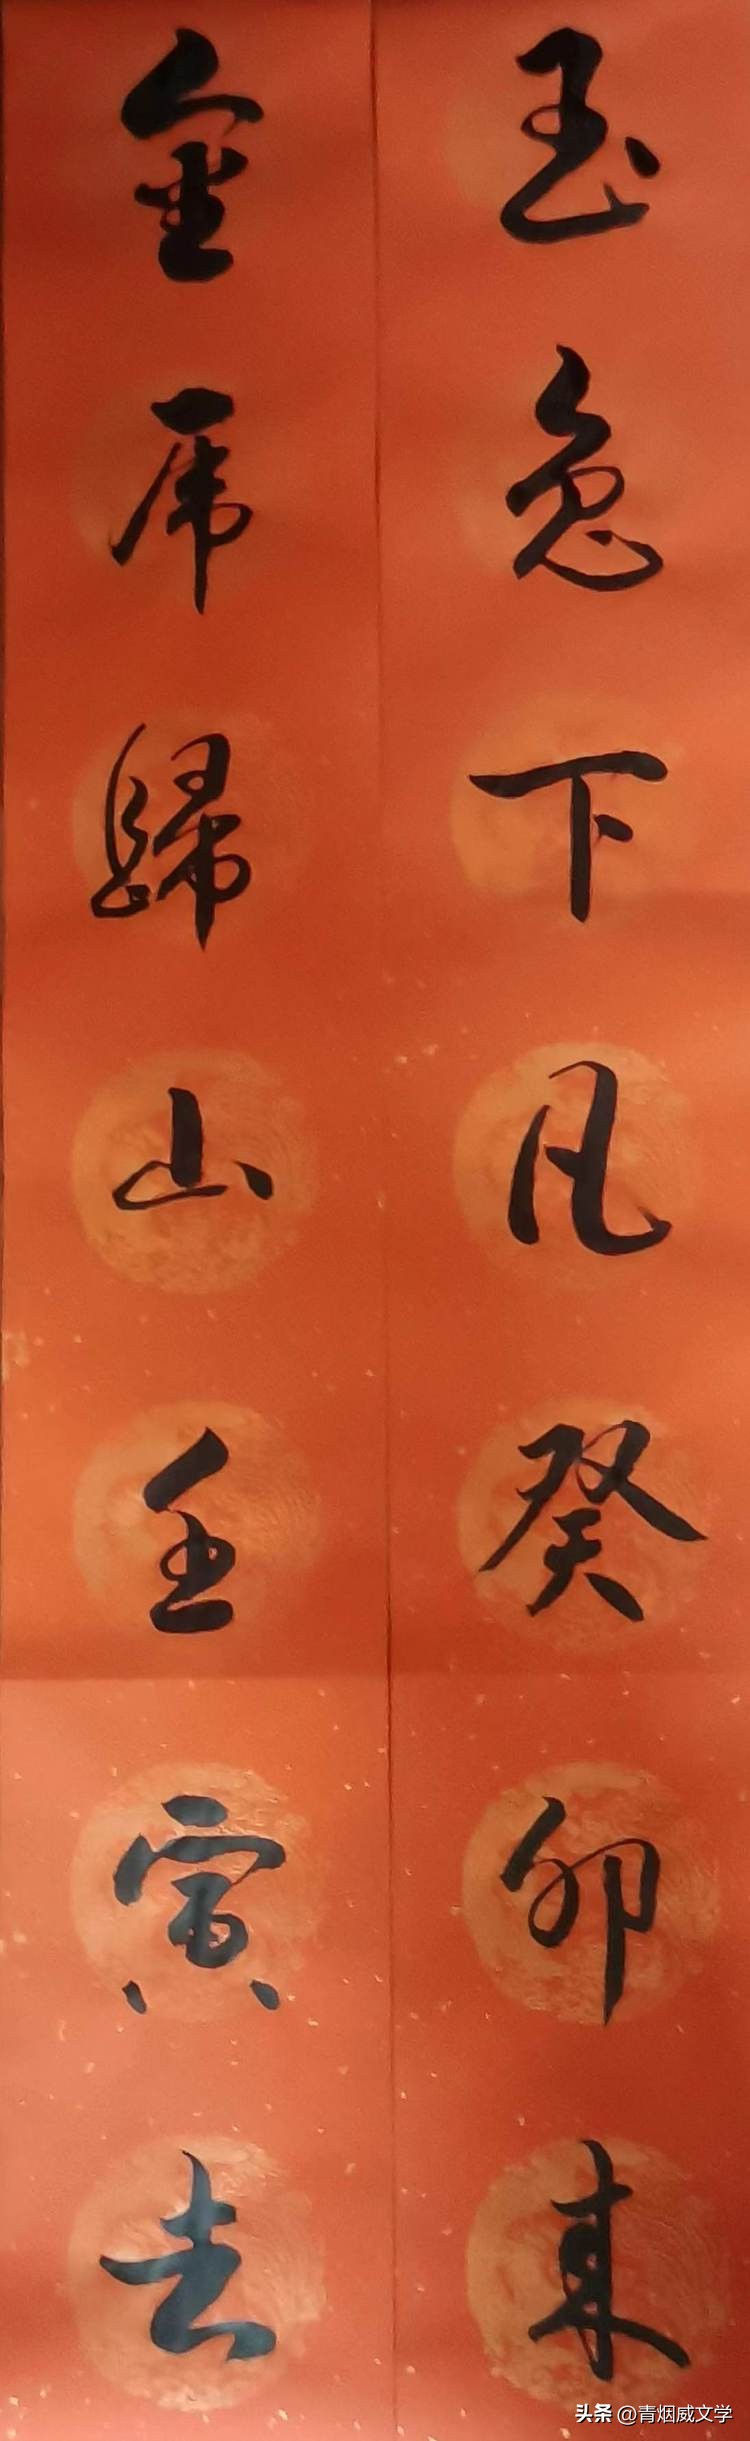 玉兔下凡癸卯来
金虎歸山壬寅去
头条 @青烟威文学